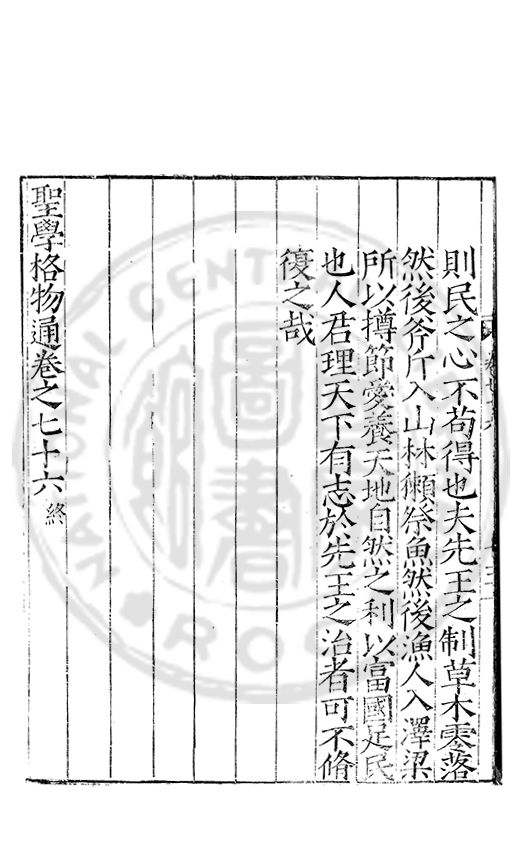 則民之心不苟得也夫先王之制草木零落
然後斧斤入山林獺祭魚然後漁人入澤梁
所以撙節愛養天地自然之利以富國足民
也人君理天下有志於先王之治者可不脩
復之哉
聖學格物通卷之七十六 終
圖書
NATIONAL CENT
R.O.